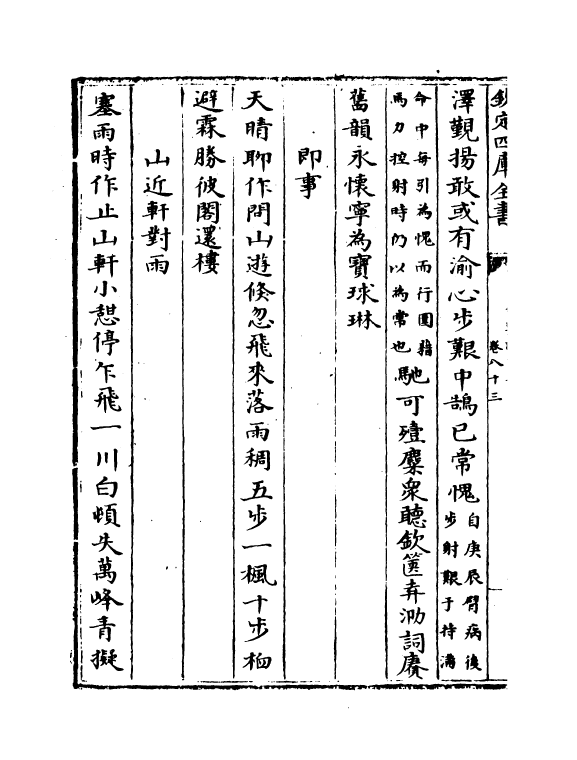 欽定四庫全書
卷八十三
澤覲揚敢或有渝心步艱中鵠已常愧自庚辰臂病後步射艱于持滿
命中每引為愧而行圍藉馬力控射時仍以為常也馳可殪麋衆聽欽篋弆泐詞賡
舊韻永懷寧為寶球琳
即事
天晴聊作問山遊倏忽飛來落雨稠五步一楓十步栢
避霖勝彼閣還樓
山近軒對雨
塞雨時作止山軒小憇停乍飛一川白頓失萬峰青擬